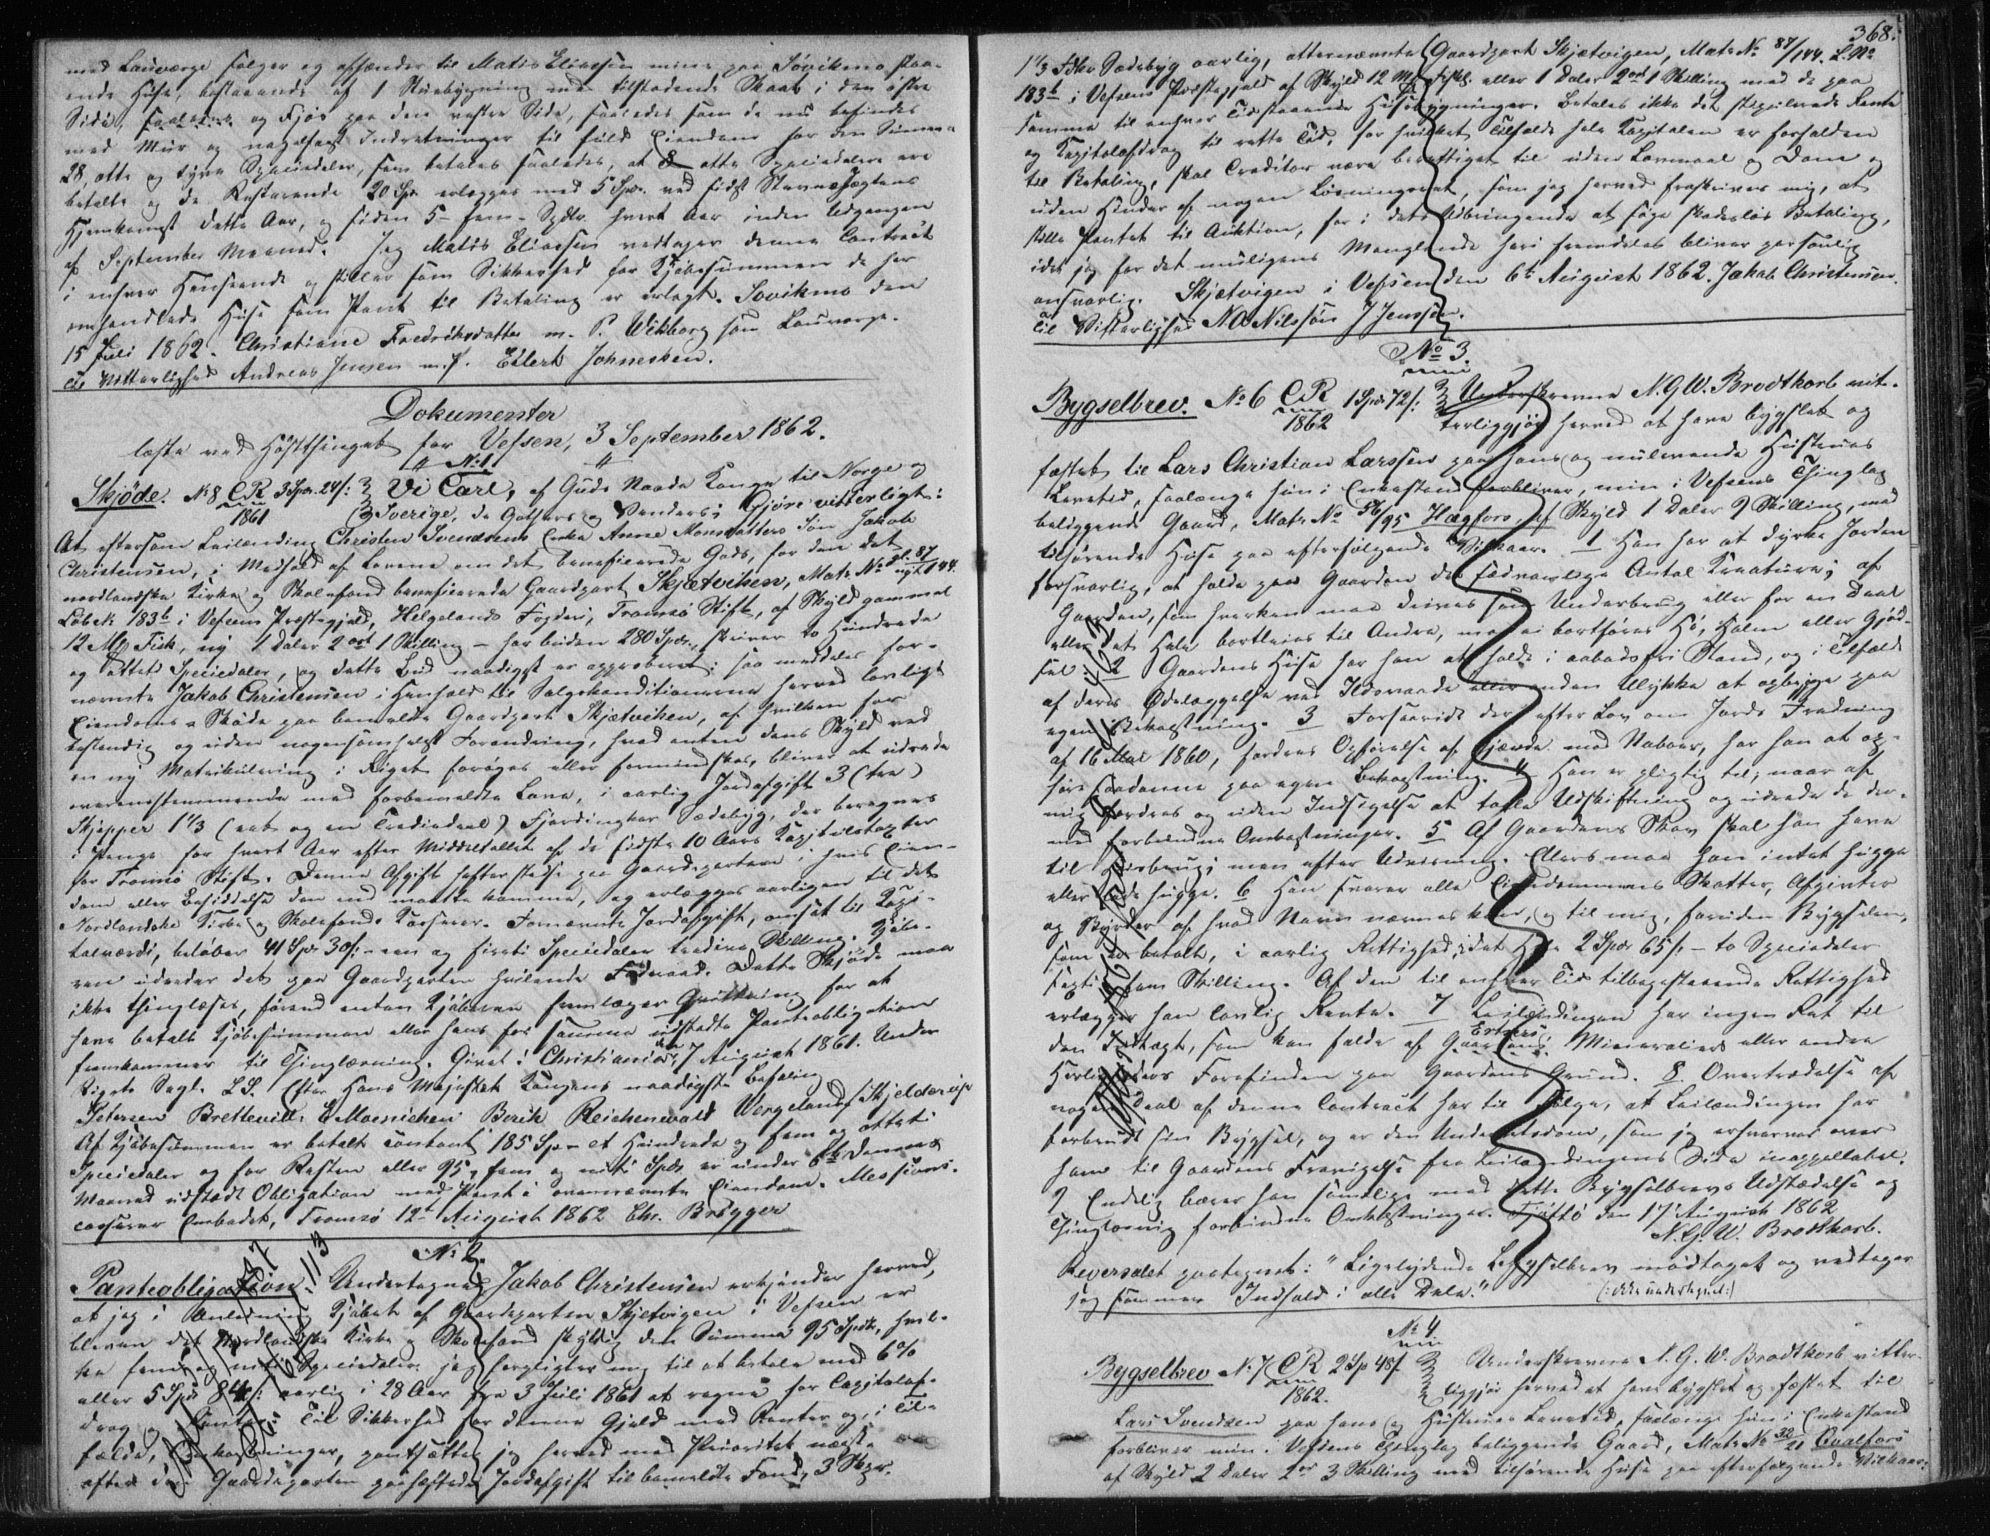 med Lauværge sælger og afhænder til Matis Eliassen mine paa Søvikmo staa-
ende Huse, bestaaende af 1 Stuebygning med tilstødende Skaab i den østre
Side, og Fjøs paa den vestre Side, saaledes som de nu befindes
med Mur og nagelfast Indretninger til fuld Eiendom for den Summa
28 otte og tyve Speciedaler, som betales saaledes, at 8 otte Speciedalere ere
betalte og de Resterende 20 Spd. erlægges med 5 Spd. ved sidst StævneJægtens
Hjemkomst dette Aar, og siden 5 - fem - Spdlr. hvert Aar inden Udgangen
af September Maaned. Jeg Matis Eliassen vedtager denne Contract
i enhver Henseende og stiller som Sikkerhed for Kjøbesummen de her
omhandlede Huse som Pant til Betaling er erlagt. Sovikmo den
15 Juli 1862. Christiane Fredriksdatter m. P. Wikborg som Lauværge.
til Vitterlighed Andreas Jensen m. f. Eilert Johnesken.
Dokumenter
læste ved Høstthinget for Vefsen, 3 September 1862.
No 1
Skjöde. No 8 CR 3 Spd. 24 s: Vi Carl, af Guds Naade Konge til Norge og
1861 Sverige, de Gothers og Venders; Gjöre vitterligt:
At eftersom Leilænding Christen Svendsens Enke Anne Monsdatters Søn Jakob
Christensen, i Medhold af Lovene om det beneficerede Gods, for den det
nordlandske Kirke og Skolefond beneficerede Gaardpart Skjætviken, Matr. No gl. 87 nyt 144.
Løbe No 183b i Vefsens Præstegjeld, Helgelands Fogderi, Tromsö Stift, af Skyld gammel
12 Mp Fisk, ny 1 Daler 2 ort 1 Skilling - har buden 280 Spd., skriver to Hundrede
og ottet Speciedaler, og dette Bud naadigst er approberet; saa meddeles for-
nævnte Jakob Christensen i Henhold til Salgskonditionerne herved lovligt
Eiendoms-Skøde paa bemeldte Gaardpart Skjætviken, af hvilken for
bestandig og uden nogensomhelst Forandring, hvad enten dens Skyld ved
en ny Matrikulering i Riget forøges eller formindskes, bliver at udrede
overensstemmende med forbemeldte Love, i aarlig Jordafgift 3 (tre)
Skjepper 1 1/3 (een og en Trediedeel) Fjerdingkar Sædebyg, der beregnes
i Penge for hvert Aar efter Middeltallet af de sidste 10 Aars Kapitelstaxter
for Tromsö Stift. Denne Afgift hefter stedse paa Gaardparten i hvis Eien-
dom eller Besiddelse den end maatte komme, og erlægges aarligen til det
Nordlandske Kirke og Skolefonds Kasserer. Fornævnte Jordafgift, omsat til Kapi-
talværdi, beløber 41 Spd 30 s: - een og firti Speciedaler tredive Skilling. Kjøbe-
ren udreder det paa Gaardparten hvilende Fodraad. Dette Skjøde maa
ikke thinglæses, førend enten Kjøberen fremlægger Qvittering for at
have betalt Kjøbesummen eller hans for samme udstedte Panteobligation
fremkommer til Thinglæsning. Givet i Christiania den 7 August 1861. Under
Rigets Segl. L.S. Efter Hans Majestæt Kongens naadigste Befaling
Petersen Bretteville E Moinichen Berih Reichenwald Wergeland Skjelderup
Af Kjøbesummen er betalt contant 185 Spd - et Hundrede og fem og ottei
Speciedaler og for Resten eller 95, fem og nitti Spdr. er under 6te dennes
Maaned udstædt Obligation med Pant i ovennævnte Eiendom. Messions-
casserer Embedet, Tromsö 12te August 1862 Chr. Brögger
No 2.
Panteobligation. Undertegnede Jakob Christensen erkjender herved,
at jeg i Anledning Kjøbet af Gaardparten Skjetvigen i Vefsen er
bleven det Nordlandske Kirke og Skolefond skyldig den Summa 95 Spd., hvil-
ke fem og nitti Speciedaler jeg forpligter mig til at betale med 6%
eller 5 Spd 84 s: aarlig i 28 Aar fra 3 Juli 1861 at regne for Capitalaf-
drag Renter. Til Sikkerhed for denne Gjeld med Renter og, i Til-
fælde, Omkostninger, pantsætter jeg herved med Prioritet næst-
efter den Gaardparten paahæftede Jordafgift til bemeldte Fond, 3 Skpr.
368.
1 1/3 Fdkr Sædebyg aarlig, ottennævnte Gaardpart Skjætvigen, Matr No 87/144. L. No
183b i Vefsens Præstegjeld af Skyld 12 Mp Fisk eller 1 Daler 2 ort 1 Skilling med de paa
samme til enhver Tid staaende Husebygninger. Betales ikke det stipulerede Rente
og Kapitalafdrag til rette Tid, for hvilket Tilfælde hele Kapitalen er forfalden
til Betaling, skal Creditor være berettiget til uden Lovmaal og Dom og
uden Hinder af nogen Løsningsret, som jeg herved fraskriver mig, at
stille Pantet til Auktion, for i dets Udbringende at søge skadesløs Betaling,
idet jeg for det muligens Manglende heri fremdeles bliver personlig
ansvarlig. Skjætvigen i Vefsen den 6te August 1862. Jakob Christensen.
til Vitterlighed N O Nilsson J Jenssen.
No 3.
Bygselbrev. No 6 CR 1 Spd. 72 s: Underskrevne N. G. W. Brodtkorb vit-
1862 terliggjør herved at have bygslet og
fæstet til Lars Christian Larssen paa hans og nulevende Hustrues
Levetid, saalænge hun i Enkestand forbliver, min i Vefsens Thinglag
beliggende Gaard, Matr. No 56/95 Hægfors af Skyld 1 Daler 9 Skilling, med
tilhørende Huse paa efterfølgende Vilkaar. 1 Han har at dyrke Jorden
forsvarlig, at holde paa Gaarden det sædvanlige Antal Kreature; af
Gaarden, som hverken maa drives som Underbrug eller for en Deel
eller det Hele bortleies til Andre, maa ei bortføres Hø, Halm eller Gjød-
sel. 2 Gaardens Huse har han at holde i aabodsfri Stand, og i Tilfælde
af deres Ødelæggelse ved Ildsvaade eller anden Ulykke at opbygge paa
egen Bekostning. 3 Forsaavidt der efter Lov om Jords Fredning
af 16 Mai 1860, fordres Opførelse af Gjærde med Naboer, har han at op-
føre saadanne paa egen Bekostning. 4 Han er pligtig til, naar af
mig fordres og uden Indsigelse at taale Udskiftning og udrede de der-
med forbundne Omkostninger. 5 Af Gaardens Skov skal han have
til Husbrug; men efter Udvisning. Ellers maa han intet hugge
eller lade hugge. 6 Han svarer alle Eiendommens Skatter, Afgivter
og Byrder af hvad Navn nævnes kan, og til mig, foruden Bygselen,
som er betalt, i aarlig Rettighed, idet Hele 2 Spdr 65 s: - to Speciedaler
sexti fem Skilling. Af den til enhver Tid tilbagestaaende Rettighed
erlægger han lovlig Rente. 7 Leilændingen har ingen Ret til
den Indtægt, som kan falde af Gaardens Ertser, Mineralier eller andre
Herligheders Forefinden paa Gaardens Grund. 8 Overtrædelse af
nogen Deel af denne Contract har til Følge, at Leilændingen har
forbrudt sin Bygsel, og er den Underretsdom, som jeg erhverver over
ham til Gaardens Fravigelse fra Leilændingens Side inappellabel.
9 Endelig bærer han samtlige med dette Bygselbrevs Udstædelse og
Thinglæsning forbundne Omkostninger. Tjøttö den 17 August 1862
N. G. W. Brodtkorb.
Reversalet paategnet: "Ligelydende Bygselbrev modtaget og vedtager
jeg sammes Indhold i alle Dele." (: ikke undertegnet:)
No 4.
Bygselbrev No 7 CR 2 Sp 48 s. Underskrevne N. G. W. Brodtkorb vitter-
1862. liggjør herved at have bygslet og fæstet til
Lars Svendsen paa hans og Hustrues Levetid, saalænge hun i Enkestand
forbliver min i Vefsens Thinglag beliggende Gaard, Matr No 32/21 Qvalfors
af Skyld 2 Daler 2 ort 3 Skilling med tilhørende Huse paa efterfølgende Vilkaar: